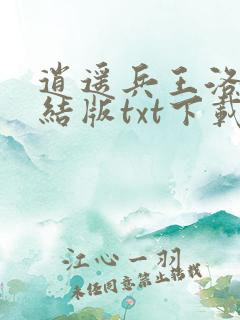 逍遥兵王洛
結版txt下載
江心一羽
未经同意禁止转载